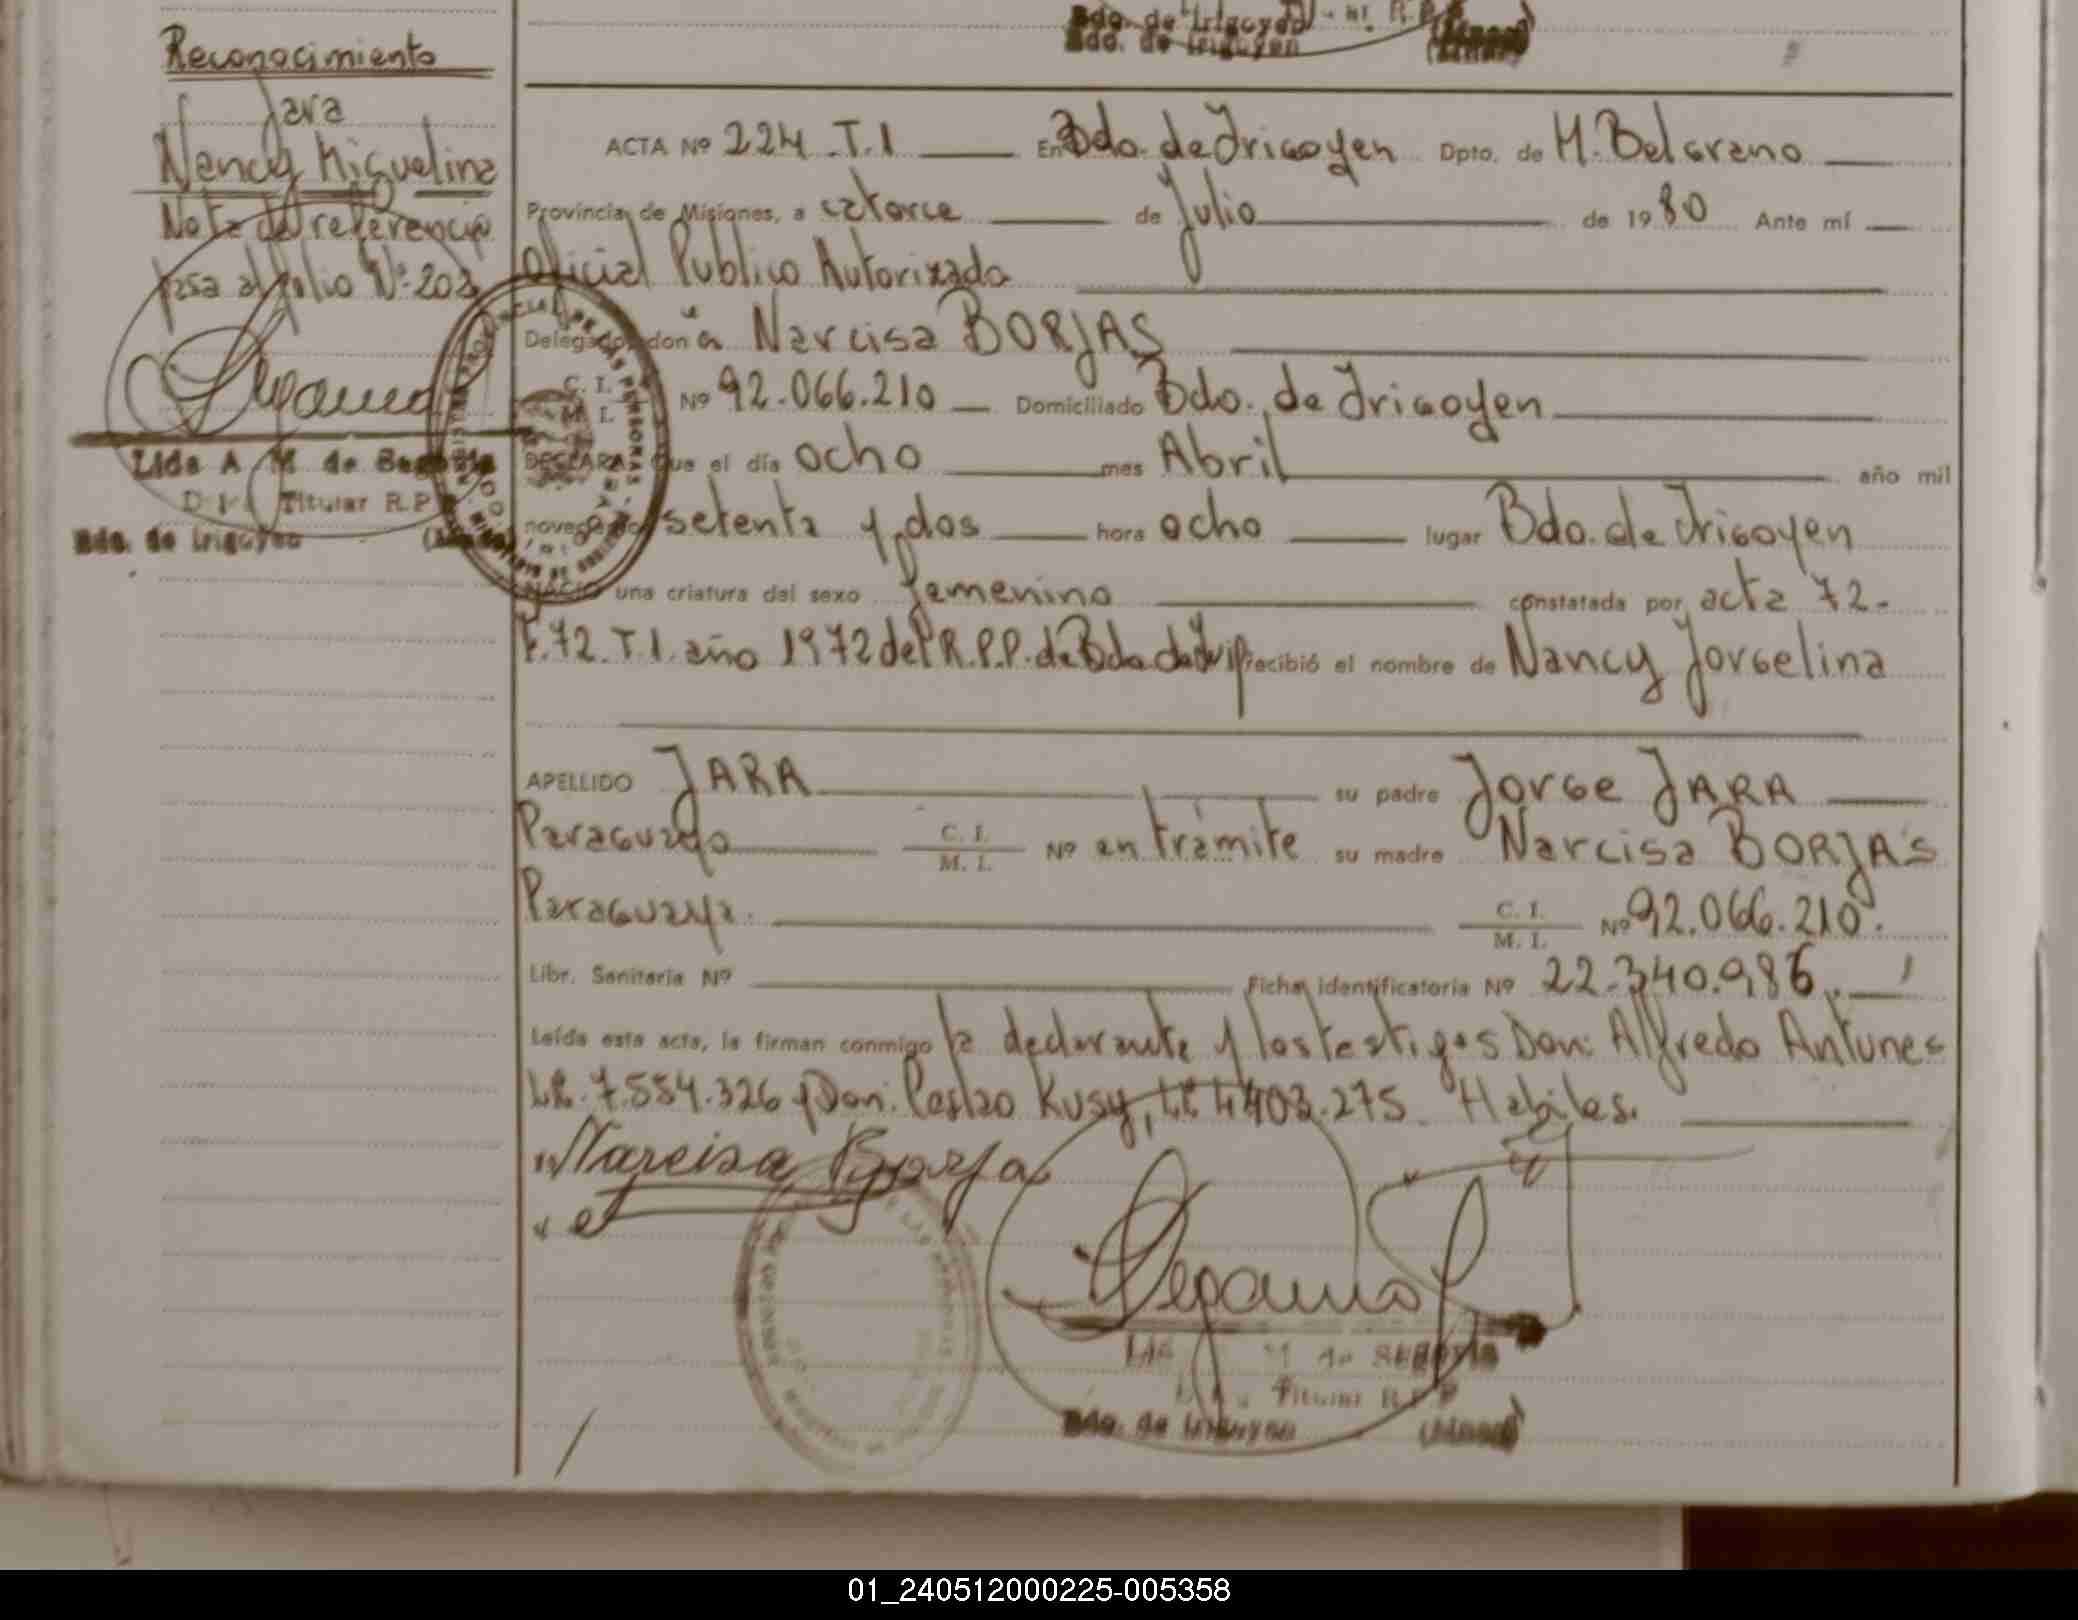 Bdo. de Irigoyen
Bdo. de Irigoyen
Reconocimiento
Jara
Nancy Miguelina
Nota de referencia
pasa al folio Nº 203
Lida A. M. de Segovia
Titular R.P.
Bdo. de Irigoyen
ACTA Nº 224 T.I En Bdo. de Irigoyen Dpto. de M. Belgrano
Provincia de Misiones, a catorce de Julio de 1980 Ante mí
Oficial Publico Autorizada
Delegado, don a Narcisa BORJAS
C. I.
M. I.
Nº 92.066.210 Domiciliado Bdo. de Irigoyen
DECLARA: Que el día ocho mes Abril año mil
novecientos setenta y dos hora ocho lugar Bdo. de Irigoyen
NACIO una criatura del sexo femenino constatada por acta 72-
F. 72. T.I. año 1972 del R.P.P. de Bdo. de Irig recibió el nombre de Nancy Jorgelina
APELLIDO JARA su padre Jorge JARA
Paraguayo C. I. M. I. Nº en trámite su madre Narcisa BORJAS
Paraguaya. C. I. M. I. Nº 92.066.210.
Libr. Sanitaria Nº Ficha identificatoria Nº 22.340.986.
Leída esta acta, la firman conmigo la declarante y los testigos Don: Alfredo Antunes
LE. 7.554.326 y Don: Kusy, LE 4403.275 Habiles.
Narcisa Borja
M. de Segovia
Titular R.P.P
Bdo. de Irigoyen
01_240512000225-005358